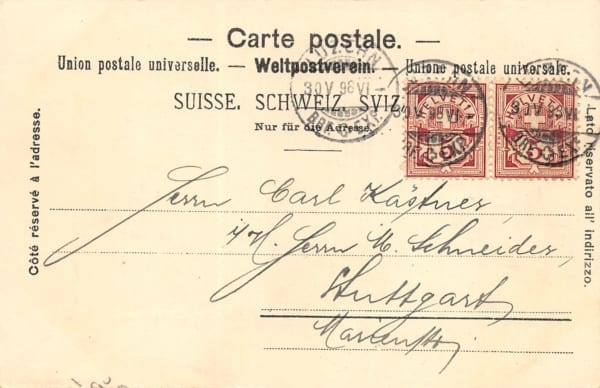 — Carte postale. —
Union postale universelle. — Weltpostverein. — Unione postale universale.
SUISSE. SCHWEIZ. SVIZ
Nur für die Adresse.
Côté réservé à l'adresse.
Lato riservato all' indirizzo.
LUZERN
30 V 96 VI
BRF. EXP.
HELVETIA
5
LUZERN
30 V 96 VI
BRF. EXP.
HELVETIA
5
LUZERN
30 V 96 VI
BRF. EXP.
Herrn Carl Kästner,
i/H. Herrn M. Schneider,
Stuttgart,
Marienstr.